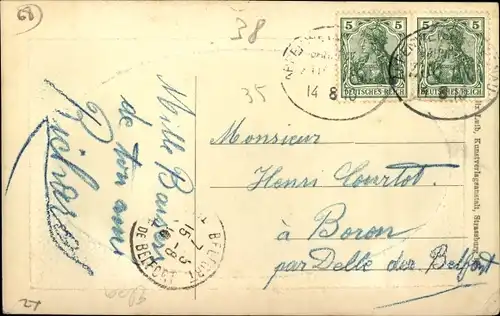 68
38
35
5 5
DEUTSCHES REICH DEUTSCHES REICH
14 8
Mille Baisers
de ton ami
Richard
Monsieur
Henri Courtot
à Boron
par Delle der Belfort
BELFORT
7 15
3 -8
DE BELFORT
Luib, Kunstverlagsanstalt, Strassburg